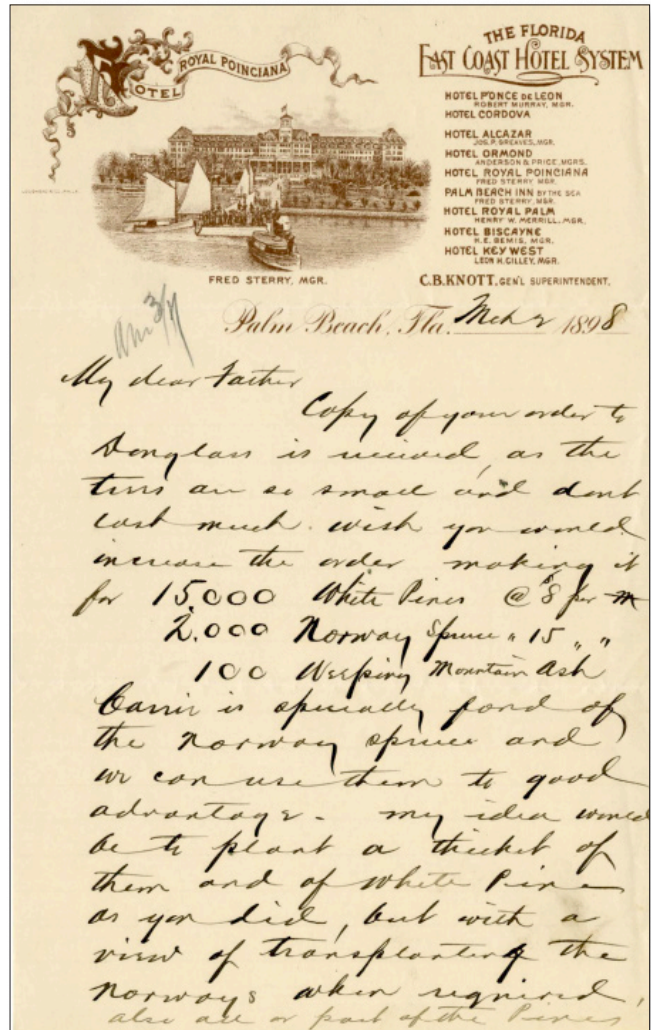 HOTEL
ROYAL POINCIANA
THE FLORIDA
EAST COAST HOTEL SYSTEM
HOTEL PONCE DE LEON
ROBERT MURRAY, MGR.
HOTEL CORDOVA
HOTEL ALCAZAR
JOS. P. GREAVES, MGR.
HOTEL ORMOND
ANDERSON & PRICE, MGRS.
HOTEL ROYAL POINCIANA
FRED STERRY MGR.
PALM BEACH INN BY THE SEA
FRED STERRY, MGR.
HOTEL ROYAL PALM
HENRY W. MERRILL, MGR.
HOTEL BISCAYNE
H.E. BEMIS, MGR.
HOTEL KEY WEST
LEON H. CILLEY, MGR.
FRED STERRY, MGR.
C.B. KNOTT, GEN'L SUPERINTENDENT.
3/7
Palm Beach, Fla. Mch 2 1898
My dear Father
Copy of your order to
Douglass is received, as the
trees are so small and dont
cost much. wish you would
increase the order making it
for 15.000 White Pines @ $8 per M
2.000 Norway Spruce " 15 " "
100 Weeping Mountain Ash
Carrie is specially fond of
the Norway spruce and
we can use them to good
advantage. my idea would
be to plant a thicket of
them and of White Pine
as you did, but with a
view of transplanting the
norways when required,
also all or part of the Pines